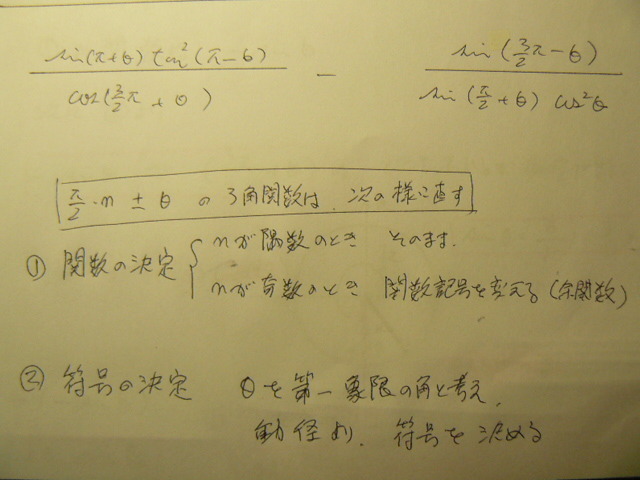 sin(π+θ) tan²(π-θ) / cos(3/2π+θ) - sin(3/2π-θ) / sin(π/2+θ) cos²θ
π/2・n ± θ の3角関数は、次の様に直す
① 関数の決定 { nが偶数のとき そのまま.
nが奇数のとき 関数記号を変える(余関数)
② 符号の決定 θを第一象限の角と考え、
動径より、符号を決める